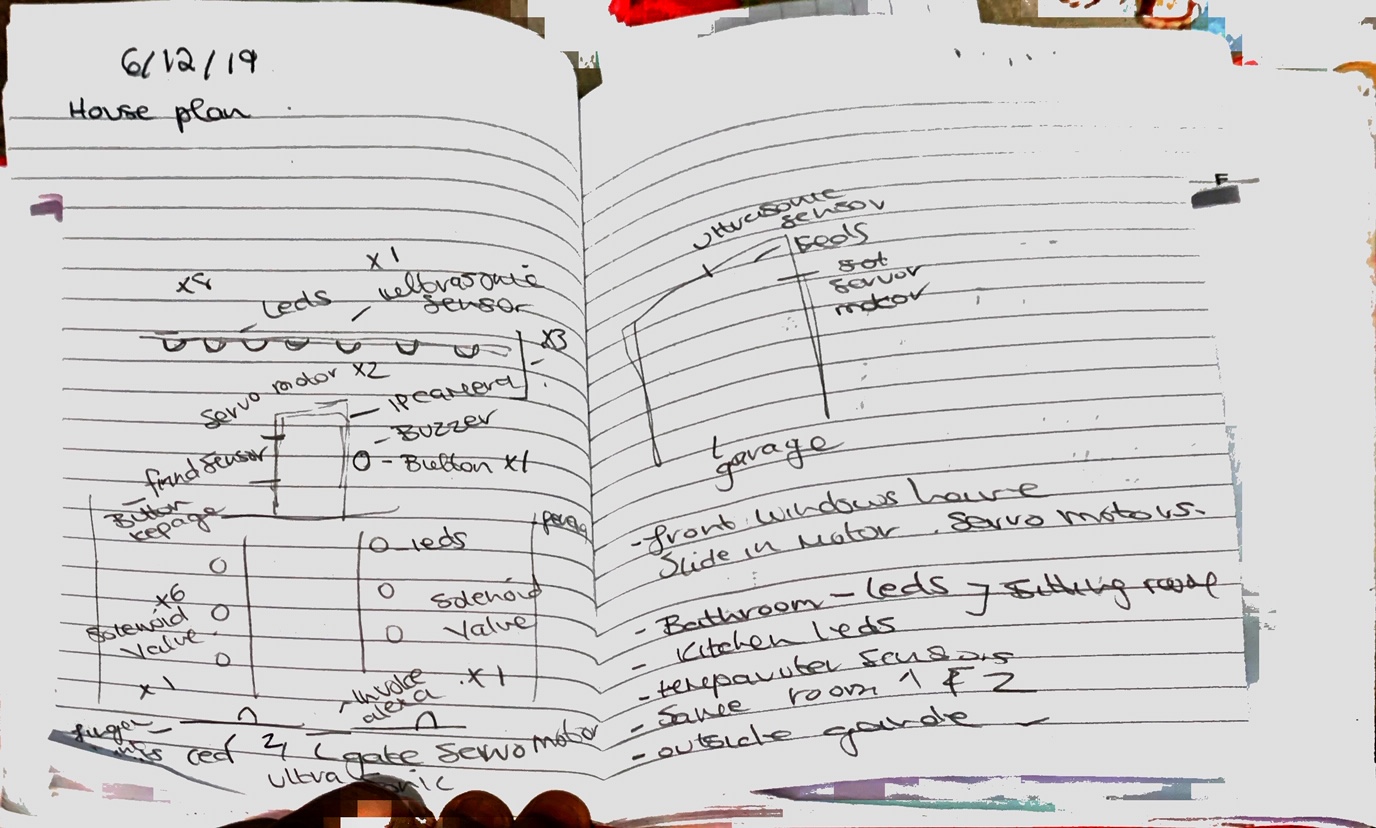 6/12/19
House plan
x1
Leds
sensor
x3
servo motor x2
IP camera
- Buzzer
- Button x1
sensor
Button
O-leds
x6
solenoid
valve
solenoid
valve
x1
- Invoke
alexa
x1
led 2
(gate servo motor
ultrasonic
ultrasonic
sensor
leds
servor
motor
garage
-front windows have
Slide in Motor. Servo motors.
- Bathroom - leds } Sitting room
- Kitchen leds
- sensors
- Same room 1 & 2
- outside